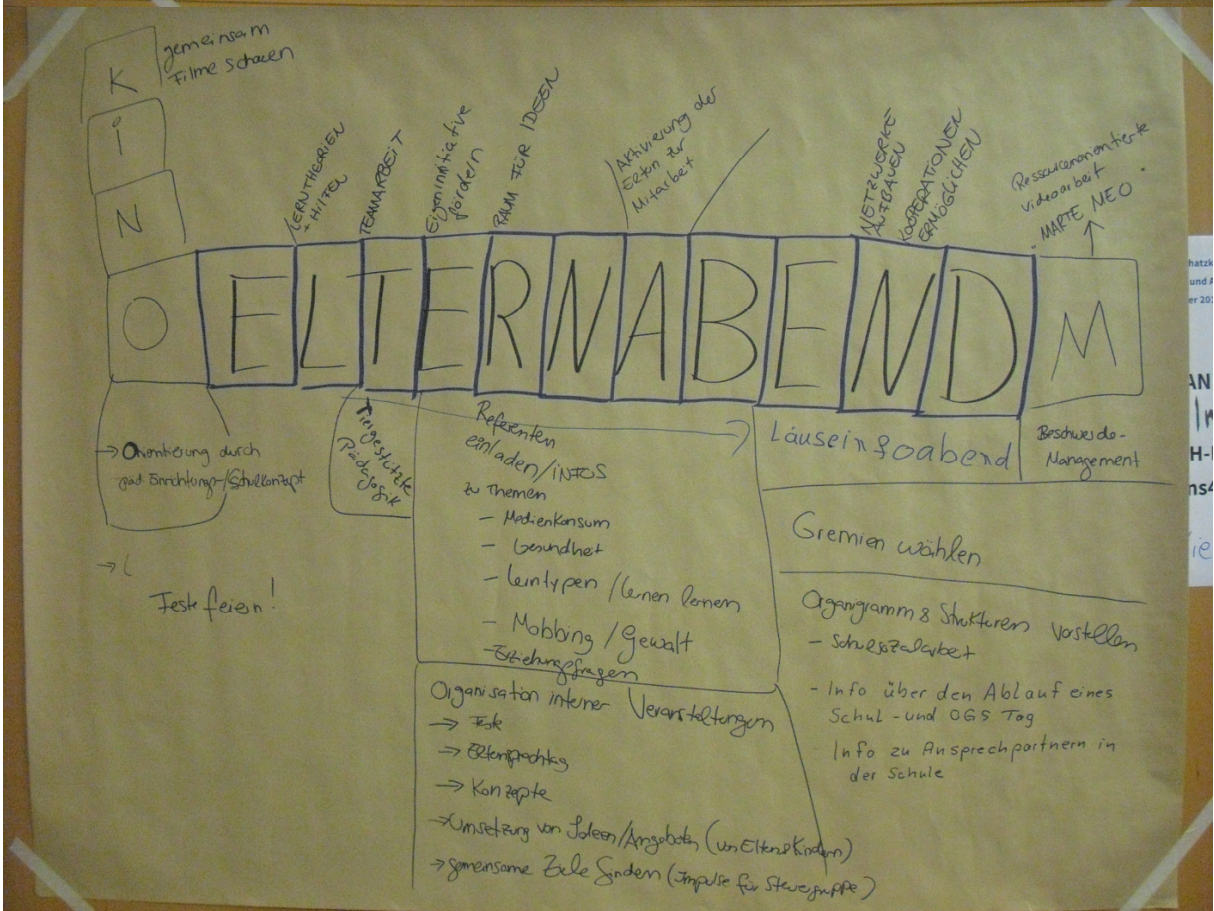 K
i
N
O
gemeinsam
Filme schauen
LERNTHEORIEN
+ HILFEN
TEAMARBEIT
Eigeninitiative
fördern
RAUM FÜR IDEEN
Aktivierung der
Eltern zur
Mitarbeit
NETZWERKE
AUFBAUEN
KOOPERATIONEN
ERMÖGLICHEN
Ressourcenorientierte
Videoarbeit
MARTE MEO
ELTERNABEND
M
→ Orientierung durch
päd. Einrichtungs-/Schulkonzept
→
Feste feiern!
Tiergestützte
Pädagogik
Referenten
einladen/iNFOS
zu Themen
– Medienkonsum
– Gesundheit
– Lerntypen / Lernen lernen
– Mobbing / Gewalt
– Erziehungsfragen
Organisation interner Veranstaltungen
→ Feste
→ Elternsprechtag
→ Konzepte
→ Umsetzung von Ideen/Angeboten (von Eltern & Kindern)
→ gemeinsame Ziele finden (Impulse für Steuergruppe)
Läuseinfoabend
Beschwerde-
Management
Gremien wählen
Organigramm & Strukturen vorstellen
– Schulsozialarbeit
- Info über den Ablauf eines
Schul- und OGS Tag
- Info zu Ansprechpartnern in
der Schule